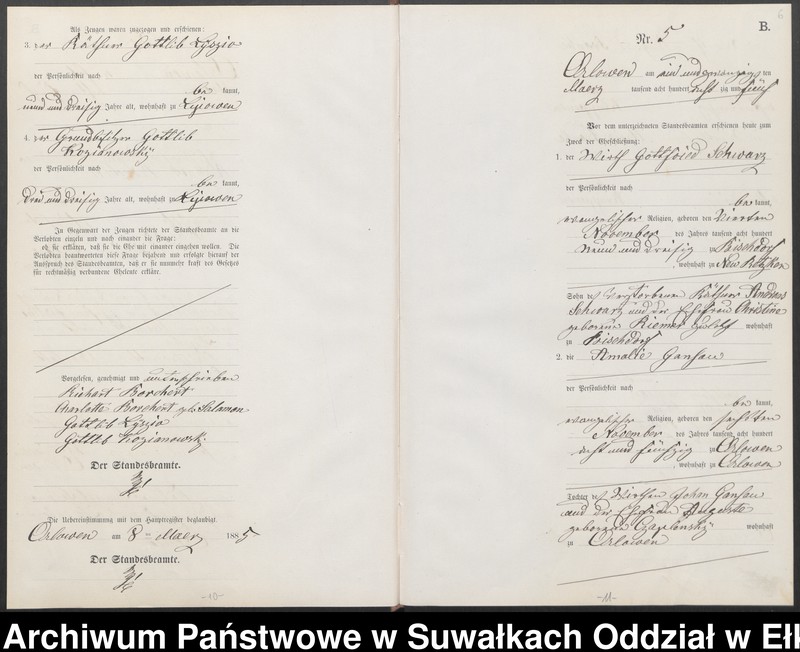 Als Zeugen waren zugezogen und erschienen:
3. der Käthner Gottlieb Lyssio
der Persönlichkeit nach
be kannt,
neun und dreißig Jahre alt, wohnhaft zu
4. der Grundbesitzer Gottlieb
Kozianowsky
der Persönlichkeit nach
be kannt,
drei und dreißig Jahre alt, wohnhaft zu
In Gegenwart der Zeugen richtete der Standesbeamte an die
Verlobten einzeln und nach einander die Frage:
ob sie erklären, daß sie die Ehe mit einander eingehen wollen. Die
Verlobten beantworteten diese Frage bejahend und erfolgte hierauf der
Ausspruch des Standesbeamten, daß er sie nunmehr kraft des Gesetzes
für rechtmäßig verbundene Eheleute erkläre.
Vorgelesen, genehmigt und unterschrieben
Richart Borchert
Charlotte Borchert geb. Salamon
Gottlib Lyssio
Gottlib Kozianowsky
Der Standesbeamte.
Die Uebereinstimmung mit dem Hauptregister beglaubigt.
Orlowen am 8ten Maerz 1885
Der Standesbeamte.
-10-
6
B.
Nr. 5
Orlowen am ein und zwanzigs ten
Maerz tausend acht hundert acht zig und fünf
Vor dem unterzeichneten Standesbeamten erschienen heute zum
Zweck der Eheschließung:
1. der Wirth Gottfried Schwarz
der Persönlichkeit nach
be kannt,
evangelischer Religion, geboren den vierten
November des Jahres tausend acht hundert
neun und dreißig zu Bischdorf
, wohnhaft zu Neu
Sohn des verstorbenen Käthner Andreas
Schwarz und der Ehefrau Christine
geborene Riemer wohnhaft
zu Bischdorf
2. die Amalie Gansau
der Persönlichkeit nach
be kannt,
evangelische Religion, geboren den sechsten
November des Jahres tausend acht hundert
acht und fünfzig zu Orlowen
, wohnhaft zu Orlowen
Tochter des Wirthen Johan Gansau
und der Ehefrau Auguste
geborene Czaplonsky wohnhaft
zu Orlowen
-11-
Archiwum Państwowe w Suwałkach Oddział w Ełk